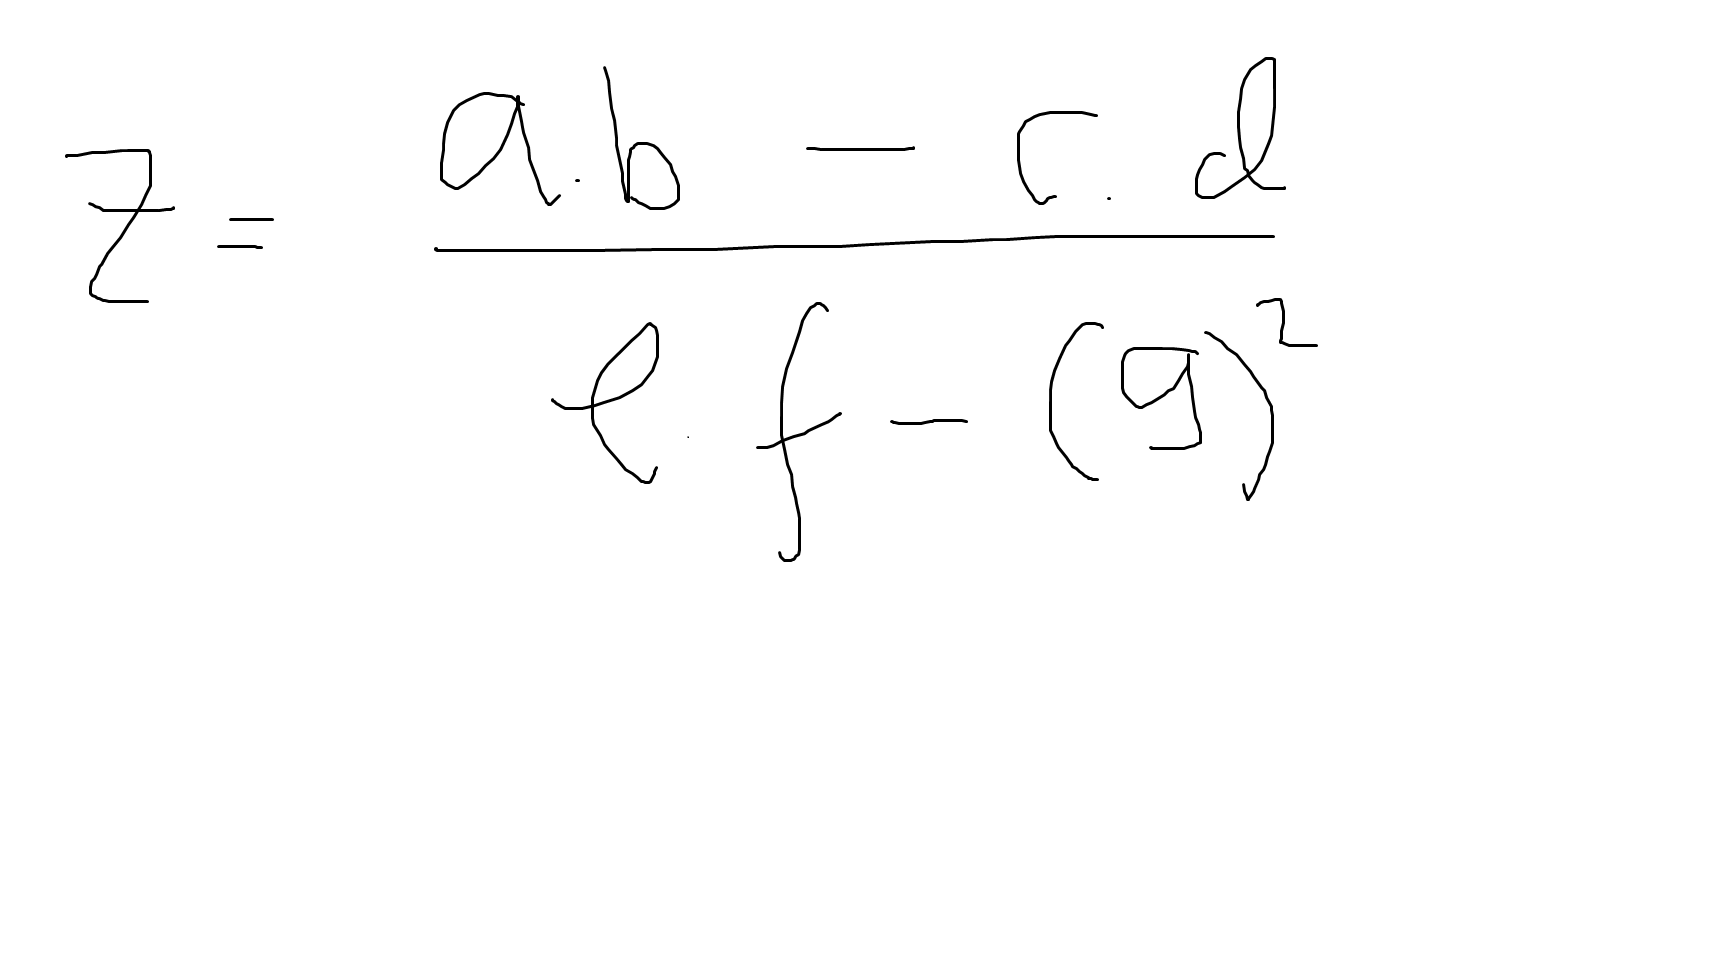 z = a.b - c.d
e.f - (g)²